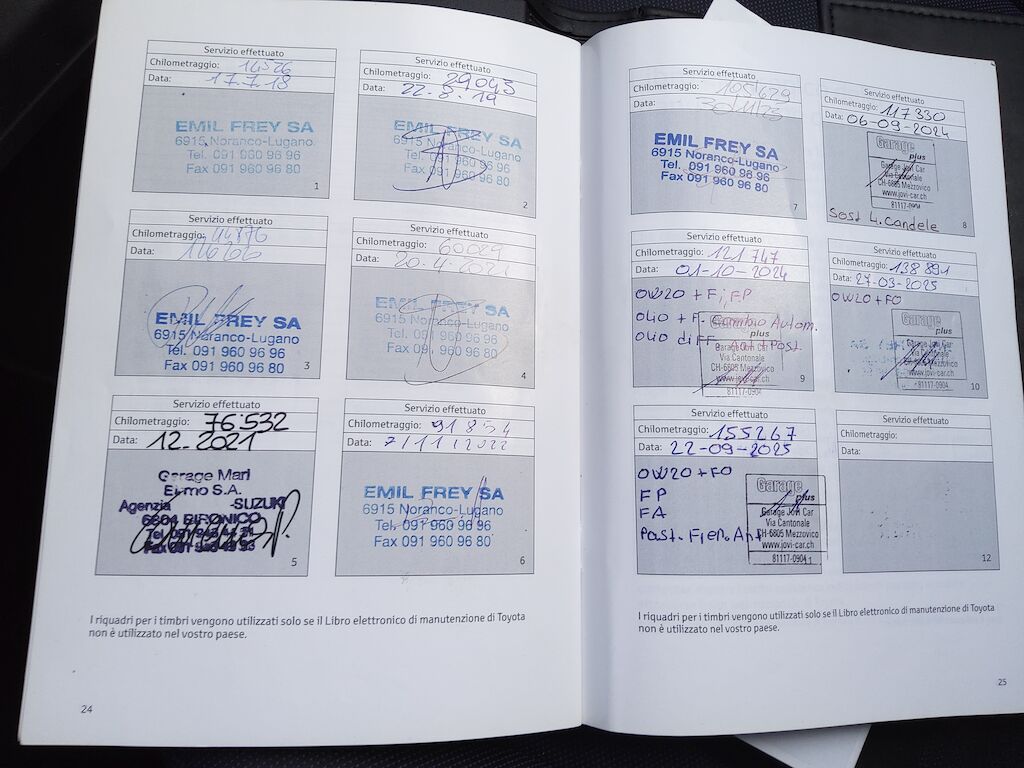 Servizio effettuato
Chilometraggio: 14526
Data: 17.7.18
EMIL FREY SA
6915 Noranco-Lugano
Tel. 091 960 96 96
Fax 091 960 96 80
1
Servizio effettuato
Chilometraggio: 29043
Data: 22.8.19
EMIL FREY SA
6915 Noranco-Lugano
Tel. 091 960 96 96
Fax 091 960 96 80
2
Servizio effettuato
Chilometraggio: 44876
Data:
EMIL FREY SA
6915 Noranco-Lugano
Tel. 091 960 96 96
Fax 091 960 96 80
3
Servizio effettuato
Chilometraggio: 60029
Data: 20.4.2021
EMIL FREY SA
6915 Noranco-Lugano
Tel. 091 960 96 96
Fax 091 960 96 80
4
Servizio effettuato
Chilometraggio: 76'532
Data: 12.2021
Garage Mari
S.A.
Agenzia -SUZUKI
6804 BIRONICO
5
Servizio effettuato
Chilometraggio: 91854
Data: 7/11/2022
EMIL FREY SA
6915 Noranco-Lugano
Tel. 091 960 96 96
Fax 091 960 96 80
6
I riquadri per i timbri vengono utilizzati solo se il Libro elettronico di manutenzione di Toyota
non è utilizzato nel vostro paese.
24
Servizio effettuato
Chilometraggio: 105629
Data:
EMIL FREY SA
6915 Noranco-Lugano
Tel. 091 960 96 96
Fax 091 960 96 80
7
Servizio effettuato
Chilometraggio: 117330
Data: 06-09-2024
Garage
plus
Garage Jovi Car
Via Cantonale
CH-6805 Mezzovico
www.jovi-car.ch
81117-0904
Sost 4. Candele
8
Servizio effettuato
Chilometraggio: 121747
Data: 01-10-2024
OW20 + F; FP
Olio + F. Cambio Autom.
Olio diFF. Ant+Post.
Garage
plus
Garage Jovi Car
Via Cantonale
CH-6805 Mezzovico
www.jovi-car.ch
81117-0904
9
Servizio effettuato
Chilometraggio: 138891
Data: 27-03-2025
OW20 + FO
Garage
plus
Garage Jovi Car
Via Cantonale
CH-6805 Mezzovico
www.jovi-car.ch
81117-0904
10
Servizio effettuato
Chilometraggio: 155267
Data: 22-09-2025
OW20 + FO
FP
FA
Past. Fren. Ant
Garage
plus
Garage Jovi Car
Via Cantonale
CH-6805 Mezzovico
www.jovi-car.ch
81117-0904
11
Servizio effettuato
Chilometraggio:
Data:
12
I riquadri per i timbri vengono utilizzati solo se il Libro elettronico di manutenzione di Toyota
non è utilizzato nel vostro paese.
25